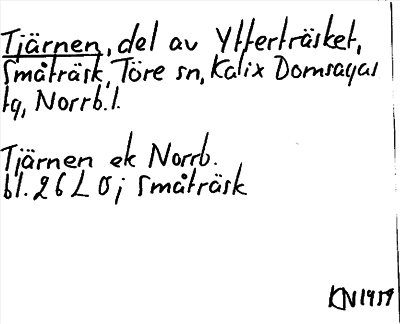 Tjärnen, del av Ytterträsket,
Småträsk, Töre sn, Kalix Domsagas
tg, Norrb.l.
Tjärnen ek Norrb.
bl. 26 L 0j Småträsk
KN1959